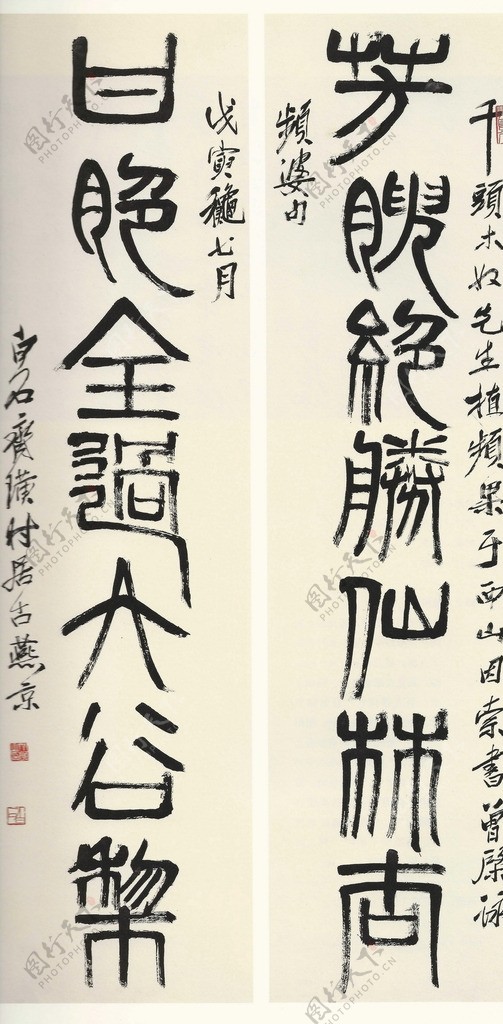 千頭木奴先生植頻果于西山因索書曾棨詠
芳腴絕勝仙林杏
頻婆句
戊寅穐七月
甘脃全過大谷棃
白石齊璜时居古燕京
图行天下
PHOTOPHOTO.CN